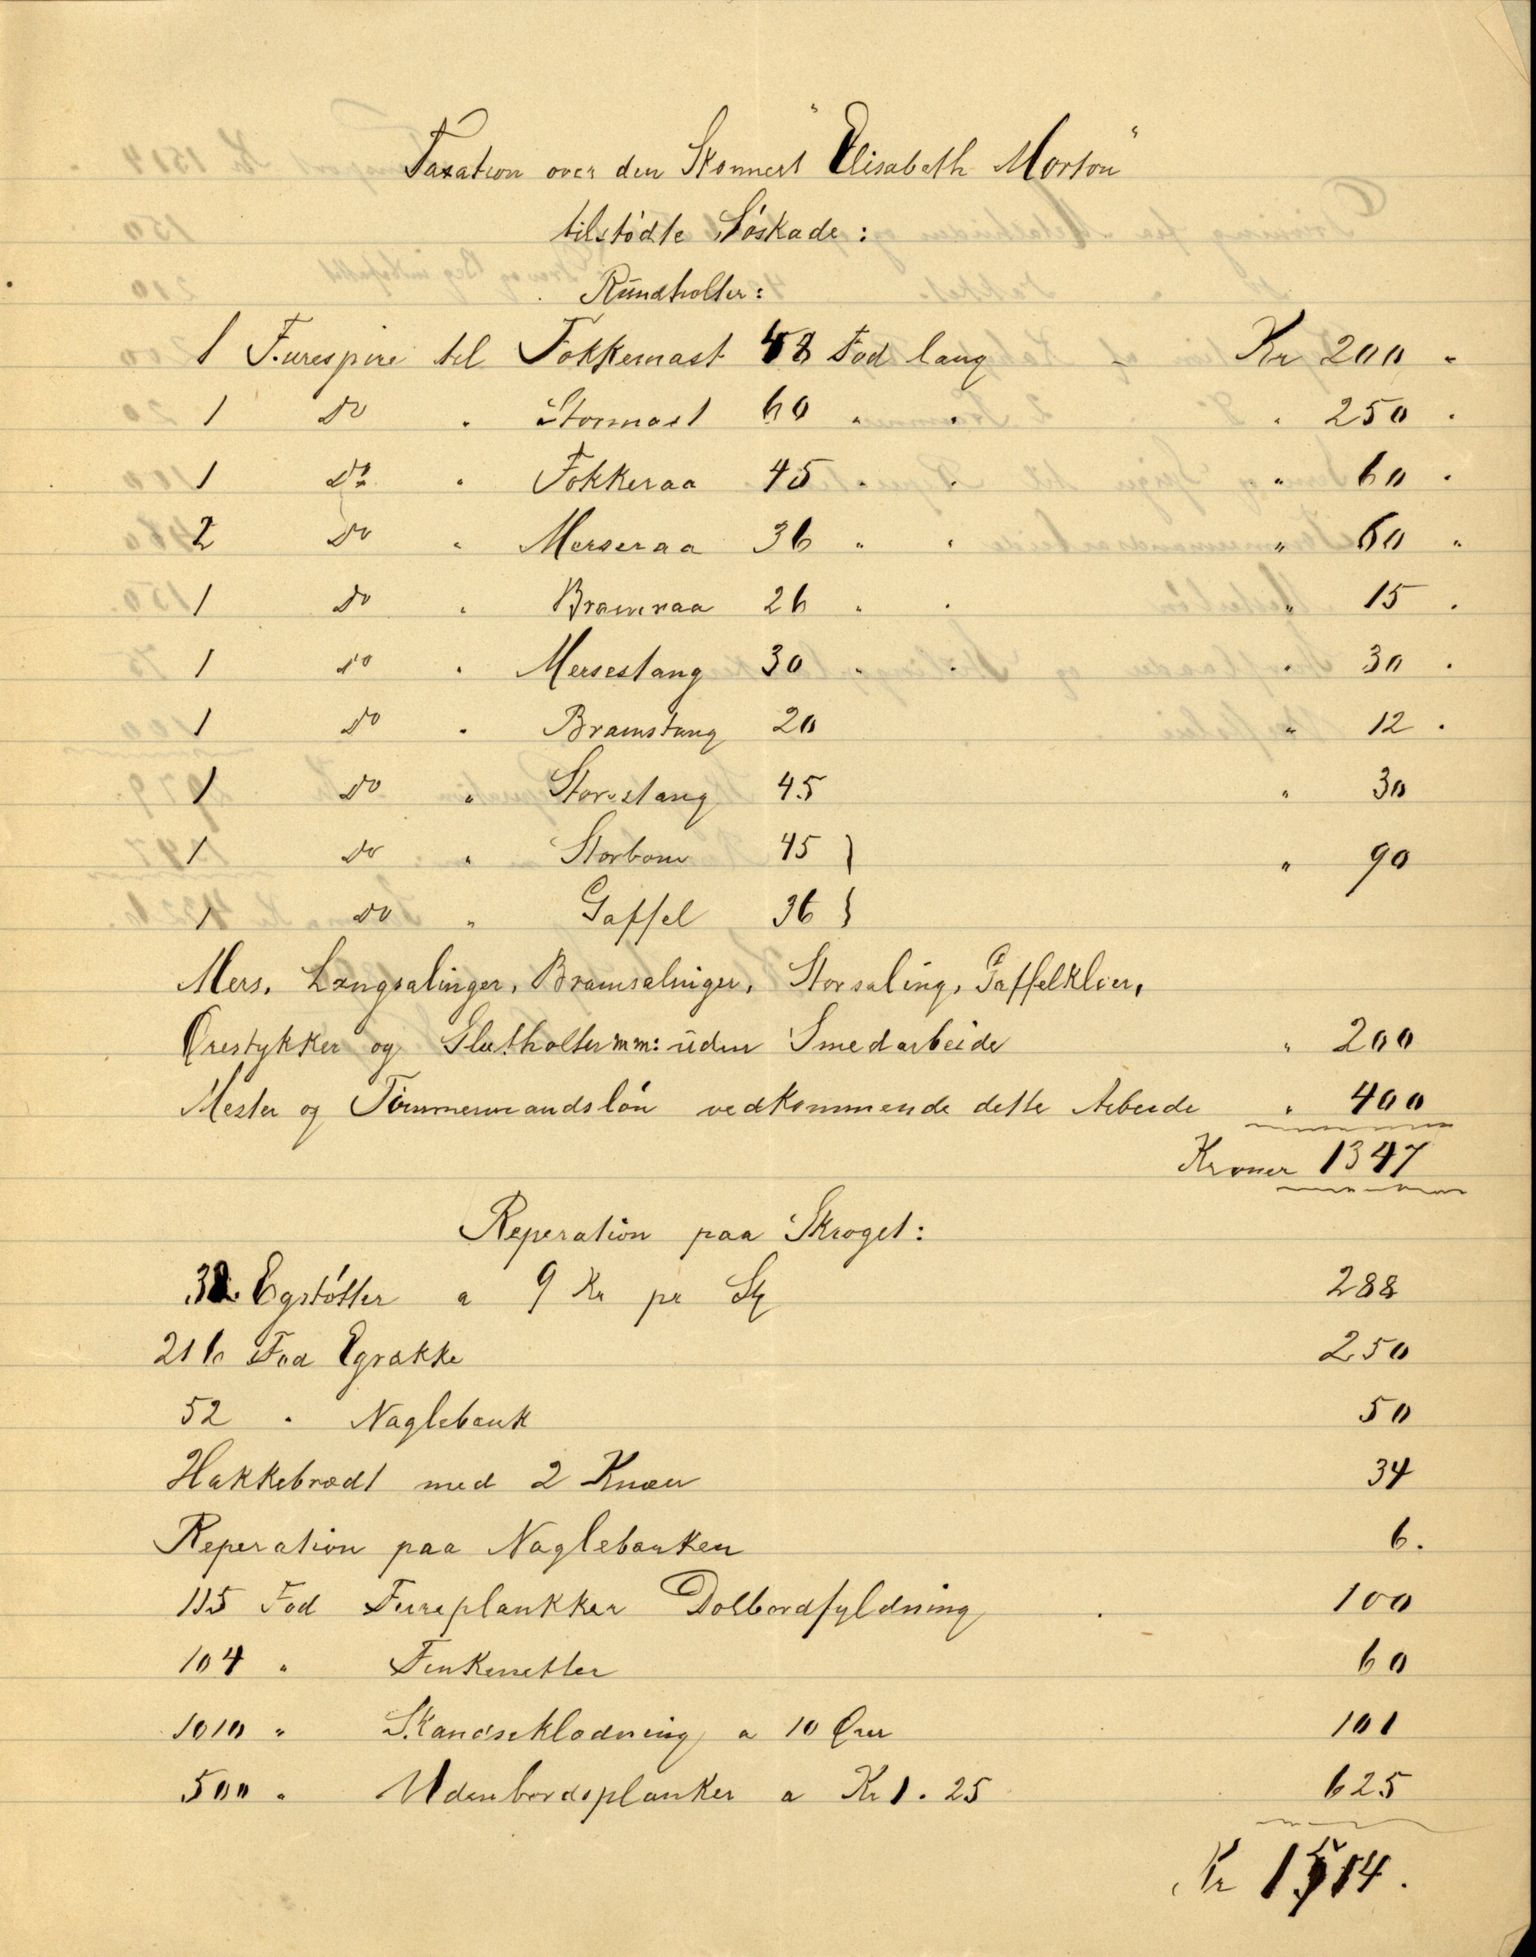 Taxation over den Skonnert "Elisabeth Morton"
tilstødte Søskade:
Rundholter:
1 Furespire til Fokkemast 48 Fod lang - Kr 200 "
1 Do " Stormast 60 " " " 250 "
1 Do " Fokkeraa 45 " " " 60 "
2 Do " Merseraa 36 " " " 60 "
1 Do " Bramraa 26 " " " 15 "
1 Do " Mersestang 30 " " " 30 "
1 Do " Bramstang 20 " 12 "
1 Do " Storstang 45 " 30
1 Do " Storbom 45 } " 90
1 Do " Gaffel 36 }
Mers, Langsalinger, Bramsalinger, Storsaling, Gaffelkloer,
Ørestykker og Slutholter mm: uden Smedarbeide " 200
Mester og Tømmermandsløn vedkommende dette Arbeide " 400
Kroner 1347
Reperation paa Skroget:
32 Egstøtter a 9 Kr pr St 288
216 Fod Egrække 250
52 " Naglebank 50
Hakkebrædt med 2 Knæer 34
Reperation paa Naglebanken 6.
115 Fod Fureplankker Dolbordfyldning 100
104 " Finkenetter 60
1010 " Skandseklædning a 10 Øre 101
500 " Udenbordsplanker a Kr 1.25 625
Kr 1514.